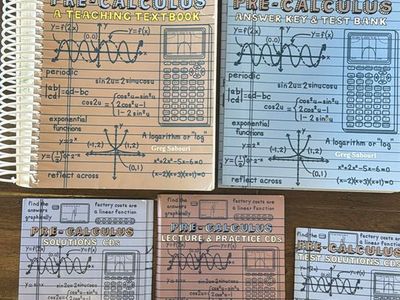 PRE-CALCULUS
A TEACHING TEXTBOOK
y=f(2x)
(0,0)
y=f(x)
periodic
sin2u = 2sinucosu
|ab|
|cd|
=ad-bc
cos2u =
cos²u-sin²u
2cos²u-1
1-2 sin²u
exponential
functions
A logarithm or "log"
Greg Sabouri
(-1,2)
(1,2)
(0,1)
x³+2x²-5x-6=0
(x-2)(x+3)(x+1)=0
reflect across
PRE-CALCULUS
ANSWER KEY & TEST BANK
y=f(2x)
(0,0)
y=f(x)
periodic
sin2u = 2sinucosu
|ab|
|cd|
=ad-bc
cos2u =
cos²u-sin²u
2cos²u-1
1-2 sin²u
exponential
functions
A logarithm or "log"
Greg Sabouri
(-1,2)
(1,2)
(0,1)
x³+2x²-5x-6=0
(x-2)(x+3)(x+1)=0
reflect across
find the
answers
graphically
factory costs are
a linear function
PRE-CALCULUS
SOLUTIONS CDS
find the
answers
graphically
factory costs are
a linear function
PRE-CALCULUS
LECTURE & PRACTICE CDS
find the
answers
graphically
factory costs are
a linear function
PRE-CALCULUS
TEST SOLUTIONS CDS